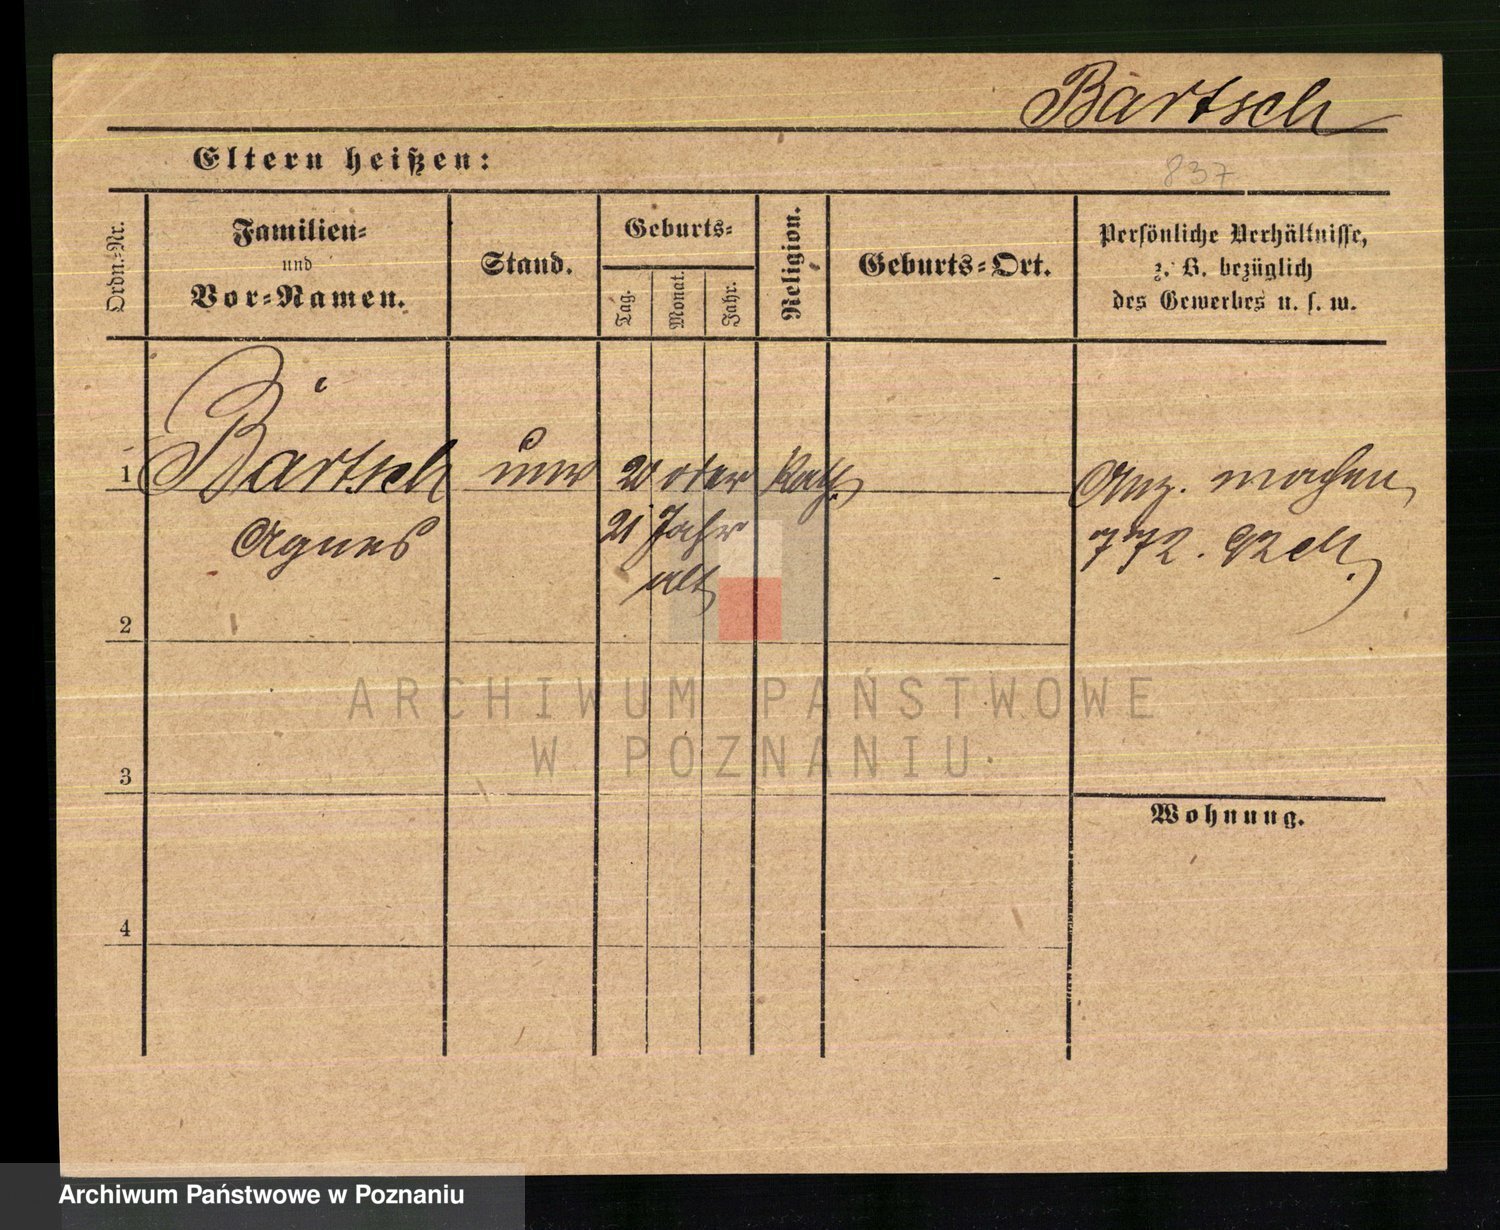 Bartsch
Eltern heißen:
837
Ordn.-Nr.
Familien-
und
Vor-Namen.
Stand.
Geburts-
Tag.
Monat.
Jahr.
Religion.
Geburts-Ort.
Persönliche Verhältnisse,
z. B. bezüglich
des Gewerbes u. s. w.
1
Bartsch
Agnes
unv
20 oder
21 Jahr
alt
Kath.
Anz. machen
772. 92 
2
3
4
Wohnung.
ARCHIWUM PAŃSTWOWE
W POZNANIU
Archiwum Państwowe w Poznaniu